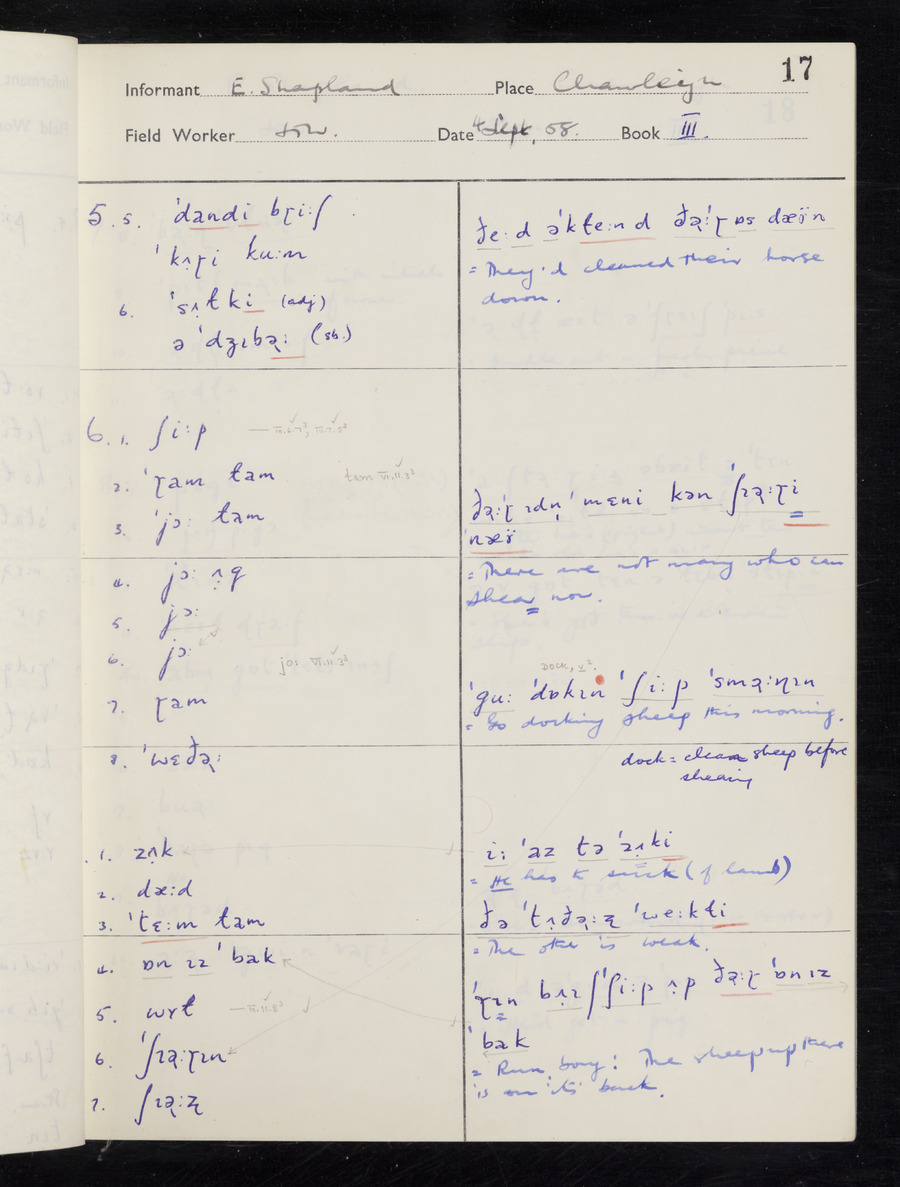 17
Informant E. Shapland Place Chawleigh
Field Worker Date 4 Sept, 58. Book III.
5. 5. ˈdandi bɽi:ʃ
ˈkʌ̣ɽi ku:m
6. ˈsɪ̣tki (adj)
ə ˈdʒɪbə̣: (sb.)
6. 1. ʃi:p
2. ˈɽam tam
3. ˈjɔ: tam
4. jɔ: ʌ̣g
5. jɔ:
6. jɔ:
7. ɽam
8. ˈwɛðə̣:
1. zʌ̣k
2. dæ:d
3. ˈtɛ:m tam
4. ɒn ɪz ˈbak
5. wɤt
6. ˈʃɪə̣:ɽɪn
7. ʃɪə̣:ʐ
ðe:d əˈkte:nd ðə̣:ɽ ɒs dæïn
= They'd cleaned their horse
down.
ðə̣:ˈɽ ɪdṇ ˈmɛni kən ˈʃɪə̣:ɽi
ˈnæï
= There are not many who can
shear now.
DOCK, v².
ˈgu: ˈdɒkɪn ˈʃi:p ˈsmə̣:ɳɪn
= Go docking sheep this morning.
dock = clean sheep before
shearing
i: ˈaz tə ˈzʌ̣ki
= He has to suck (of lamb)
ðə ˈtʌ̣ðə̣:ʐ ˈwe:kti
= The other is weak.
ˈɽɪn bʌ̣ɪ ʃʃi:p ʌ̣p ðə̣:ɽ ˈɒn ɪz
ˈbak
= Run, boy! The sheep up there
is on its back.